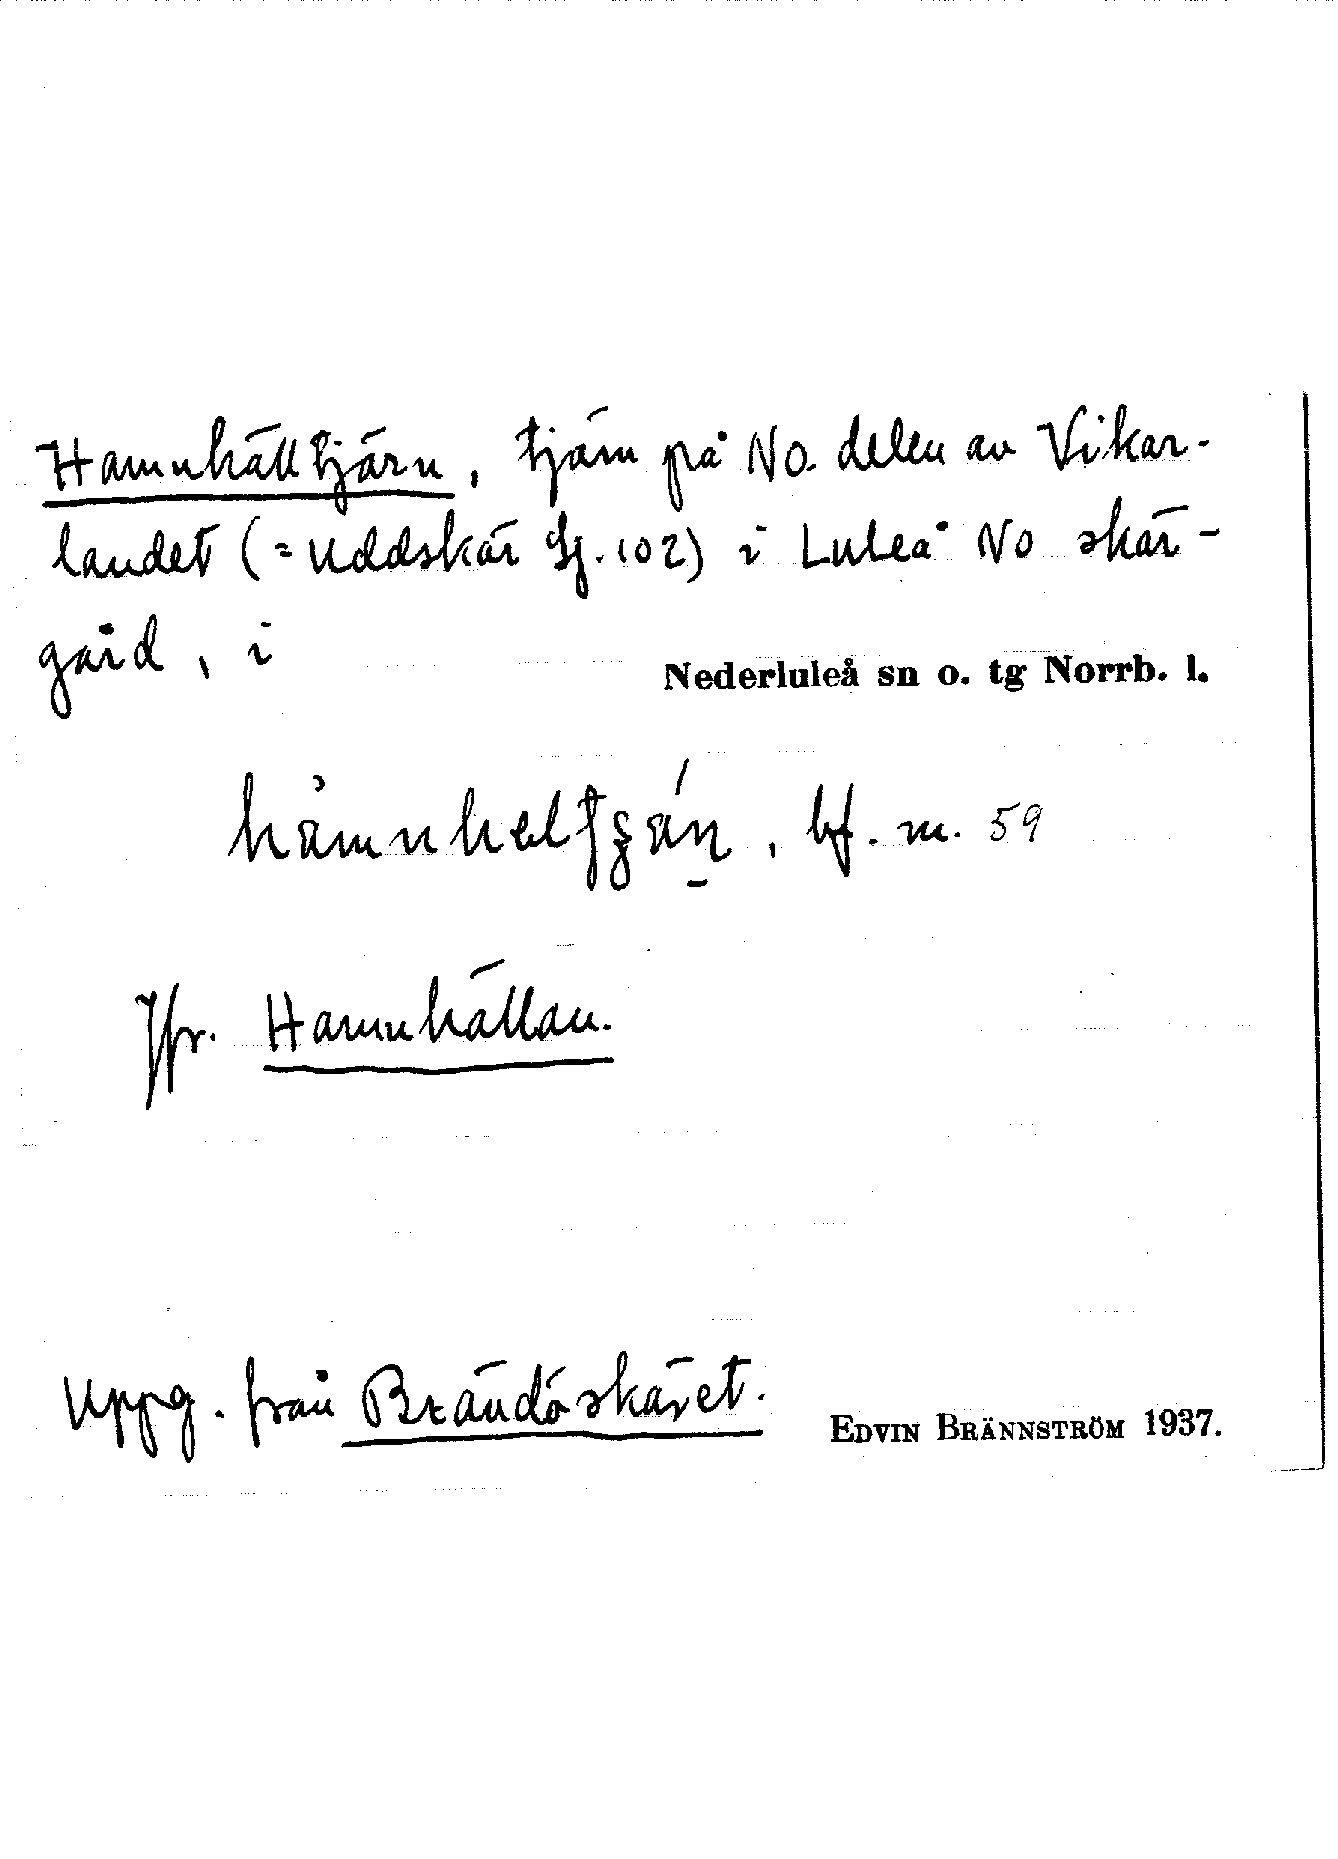 Hamnhälltjärn, tjärn på No. delen av Vikar-
landet (= Uddskär Sj. 102) i Luleå No skär-
gård, i
Nederluleå sn o. tg Norrb. l.
bf. m. 59
Jfr. Hamnhällan.
Uppg. från Brändöskäret.
EDVIN BRÄNNSTRÖM 1937.